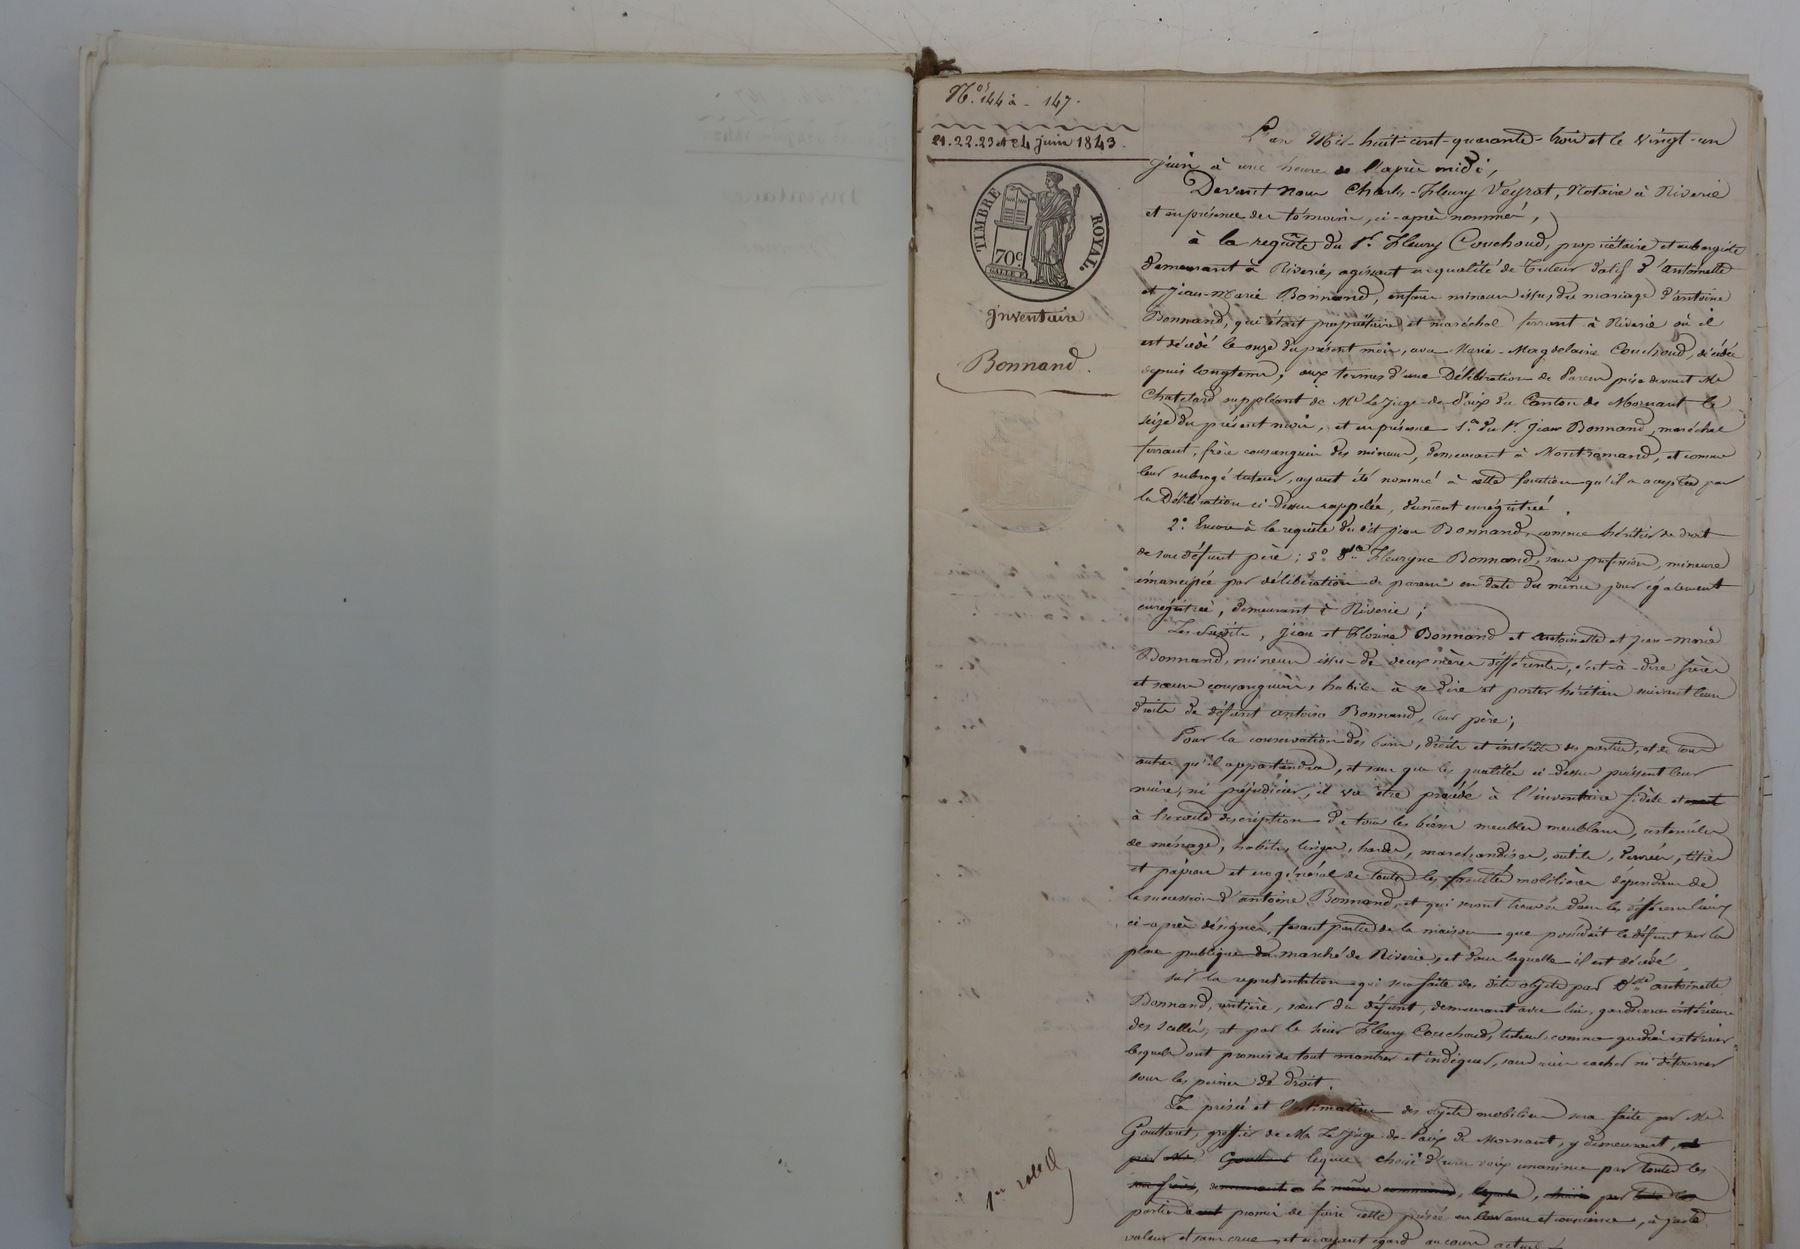 Nos 144 à - 147.
21.22.23 et 24 juin 1843.
TIMBRE ROYAL.
70c.
Inventaire
Bonnand.
L'an Mil-huit-cent-quarante-trois et le vingt-un
juin à une heure de l'après midi,
Devant Nous Charles-Fleury Veyrat, Notaire à Riverie
et en présence des témoins, ci-après nommés,
à la requête du Sr. Fleury Couchoud, propriétaire et aubergiste
demeurant à Riverie, agissant en qualité de Tuteur datif d'antoinette
et Jean-Marie Bonnand, enfans mineurs issus, du mariage d'antoine
Bonnand, qui était propriétaire et maréchal ferrant à Riverie où il
est décédé le onze du présent mois, avec Marie-Magdelaine Couchoud, décédée
depuis longtems, aux termes d'une Délibération de Parens prise devant Me
Chatelard suppléant de Mr Le Juge-de-Paix du Canton de Mornant le
seize du présent mois, et en présence 1.° du Sr. Jean Bonnand, maréchal
ferrant, frère consanguin des mineurs, demeurant à Montromand, et comme
leur subrogé tuteur, ayant été nommé à cette fonction qu'il a acceptée par
la Délibération ci-dessus rappelée, dument enrégistrée.
2.° Encore à la requête du dit Jean Bonnand, comme héritier de droit
de son défunt père; 3.° Dlle Fleurine Bonnand, sans profession, mineure
émancipée par délibération de parens en date du même jour également
enrégistrée, demeurant à Riverie;
Les Susdits, Jean et Fleurine Bonnand et antoinette et Jean-Marie
Bonnand, mineurs issus de deux mères différentes, c'est-à-dire frères
et sœurs consanguins, habiles à se dire et porter héritiers suivant leurs
droits de défunt antoine Bonnand, leur père;
Pour la conservation des biens, droits et intérêts des parties, et de tous
autres qu'il appartiendra, et sans que les qualités ci-dessus puissent leur
nuire, ni préjudicier, il va être procédé à l'inventaire fidèle et
à l'exacte description de tous les biens meubles meublans, ustensiles
de ménage, habits, linges, hardes, marchandises, outils, denrées, titres
et papiers et en général de toutes les facultés mobilières dépendans de
la succession d'antoine Bonnand, et qui seront trouvés dans les différens lieux
ci-après désignés, fesant partie de la maison que possédait le défunt sur la
place publique du marché de Riverie, et dans laquelle il est décédé.
Sur la représentation qui sera faite des dits objets par Dlle antoinette
Bonnand, rentière, sœur du défunt, demeurant avec lui, gardienne intérieure
des scellés, et par le sieur Fleury Couchoud, tuteur, comme gardien extérieur
lesquels ont promis de tout montrer et indiquer, sans rien cacher ni détourner
sous les peines de droit.
La prisée et l'estimation des objets mobiliers sera faite par Me
Gouttard, greffier de Mr Le Juge-de-Paix de Mornant, y demeurant,
par Me Gouttard lequel choisi d'une voix unanime par toutes les
demeurant à la même commune, lequel, choisi par toutes les
parties a promis de faire cette prisée en âme et conscience, à juste
valeur et sans crue, et en ayant égard au cours actuel.
1er rôle